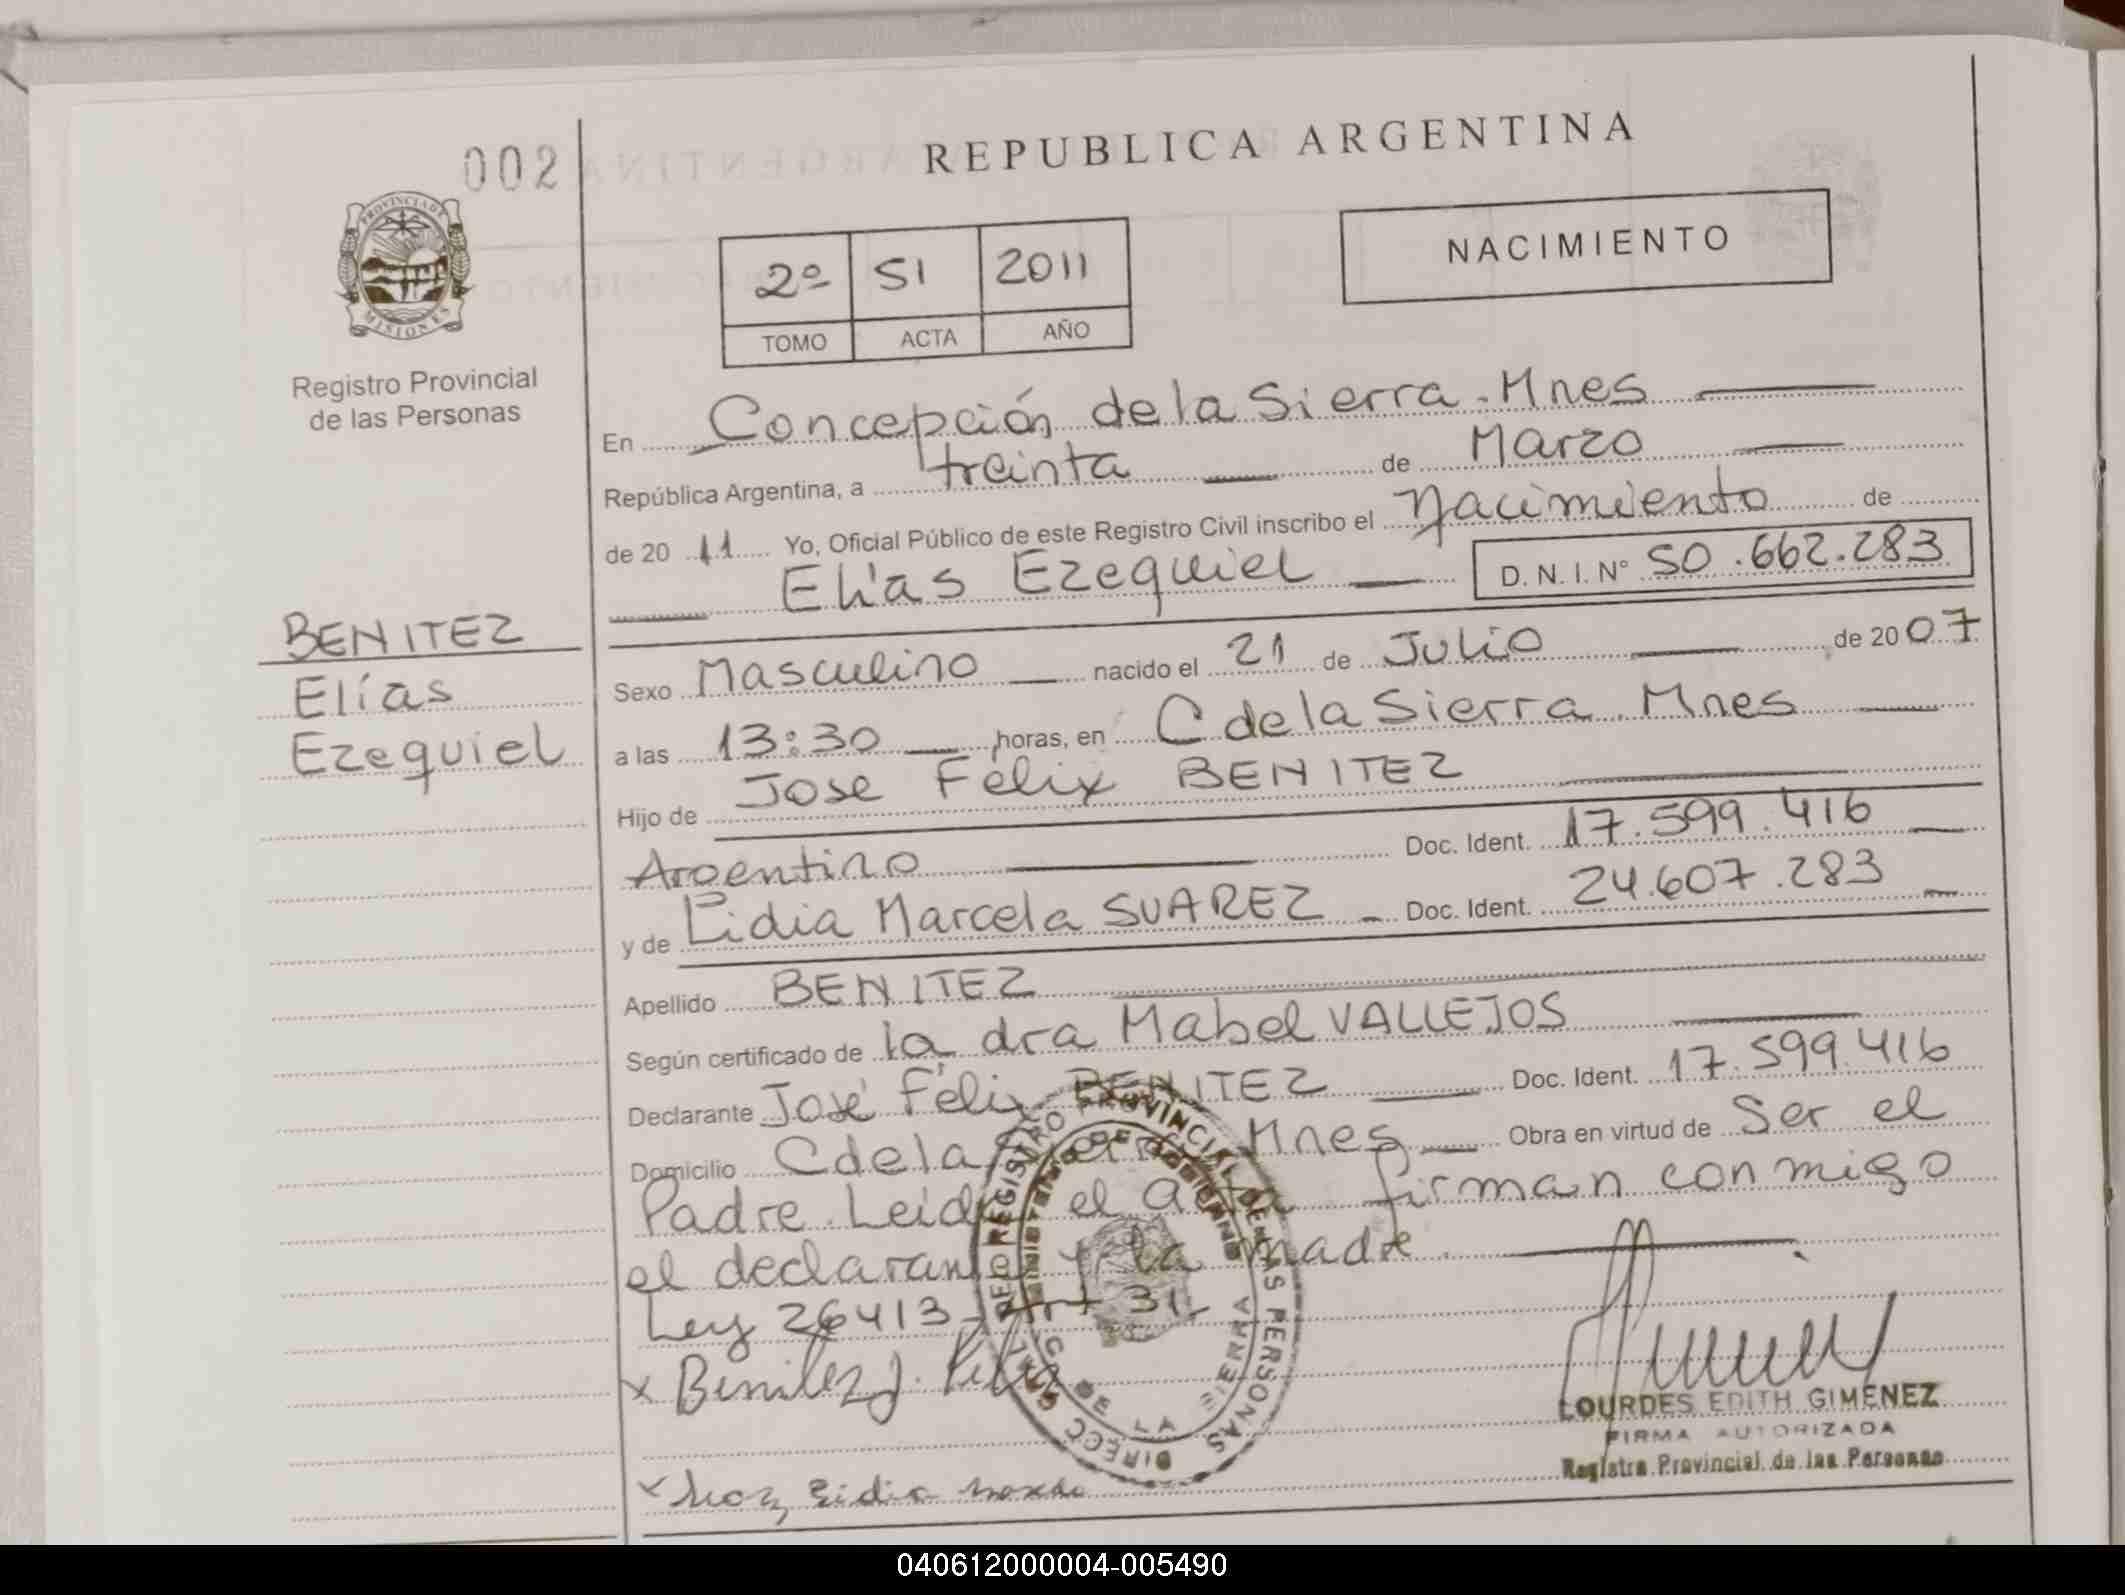 002
REPUBLICA ARGENTINA
PROVINCIA DE
MISIONES
Registro Provincial
de las Personas
2º 51 2011
TOMO ACTA AÑO
NACIMIENTO
En Concepción de la Sierra. Mnes
República Argentina, a treinta de Marzo
de 20 11 Yo, Oficial Público de este Registro Civil inscribo el Nacimiento de
Elías Ezequiel D.N.I. Nº 50.662.283
BENITEZ
Elías
Ezequiel
Sexo Masculino nacido el 21 de Julio de 20 07
a las 13:30 horas, en C de la Sierra. Mnes
Hijo de Jose Félix BENITEZ
Argentino Doc. Ident. 17.599.416
y de Lidia Marcela SUAREZ Doc. Ident. 24.607.283
Apellido BENITEZ
Según certificado de la dra Mabel VALLEJOS
Declarante José Félix BENITEZ Doc. Ident. 17.599.416
Domicilio C de la Sierra Mnes Obra en virtud de Ser el
Padre. Leida el acta firman conmigo
el declarante y la madre.
Ley 26413 - Art 31.-
x Benitez J. Felix
DIRECC REGISTRO PROVINCIAL DE LAS PERSONAS
MINISTERIO DE GOBIERNO
C. DE LA SIERRA
LOURDES EDITH GIMENEZ
FIRMA AUTORIZADA
Registro Provincial de las Personas
Lidia
040612000004-005490